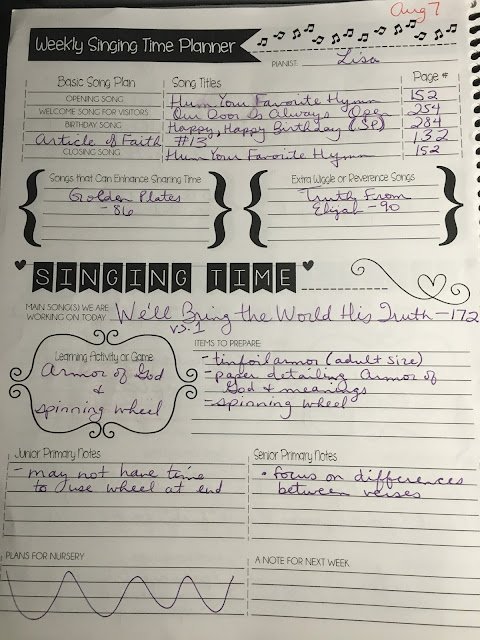 Aug 7
Weekly Singing Time Planner
PIANIST: Lisa
Basic Song Plan Song Titles Page #
OPENING SONG Hum Your Favorite Hymn 152
WELCOME SONG FOR VISITORS Our Door Is Always Open 254
BIRTHDAY SONG Happy, Happy Birthday (SP) 284
Article of Faith #13 132
CLOSING SONG Hum Your Favorite Hymn 152
Songs that Can Enhance Sharing Time
Golden Plates
-86
Extra Wiggle or Reverence Songs
Truth From
Elijah -90
SINGING TIME
MAIN SONG(S) WE ARE
WORKING ON TODAY We'll Bring the World His Truth -172
vs. 1
Learning Activity or Game
Armor of God
&
spinning wheel
ITEMS TO PREPARE:
- tinfoil armor (adult size)
- paper detailing Armor of
God & meanings
- spinning wheel
Junior Primary Notes
- may not have time
to use wheel at end
Senior Primary Notes
• focus on differences
between verses
PLANS FOR NURSERY
A NOTE FOR NEXT WEEK